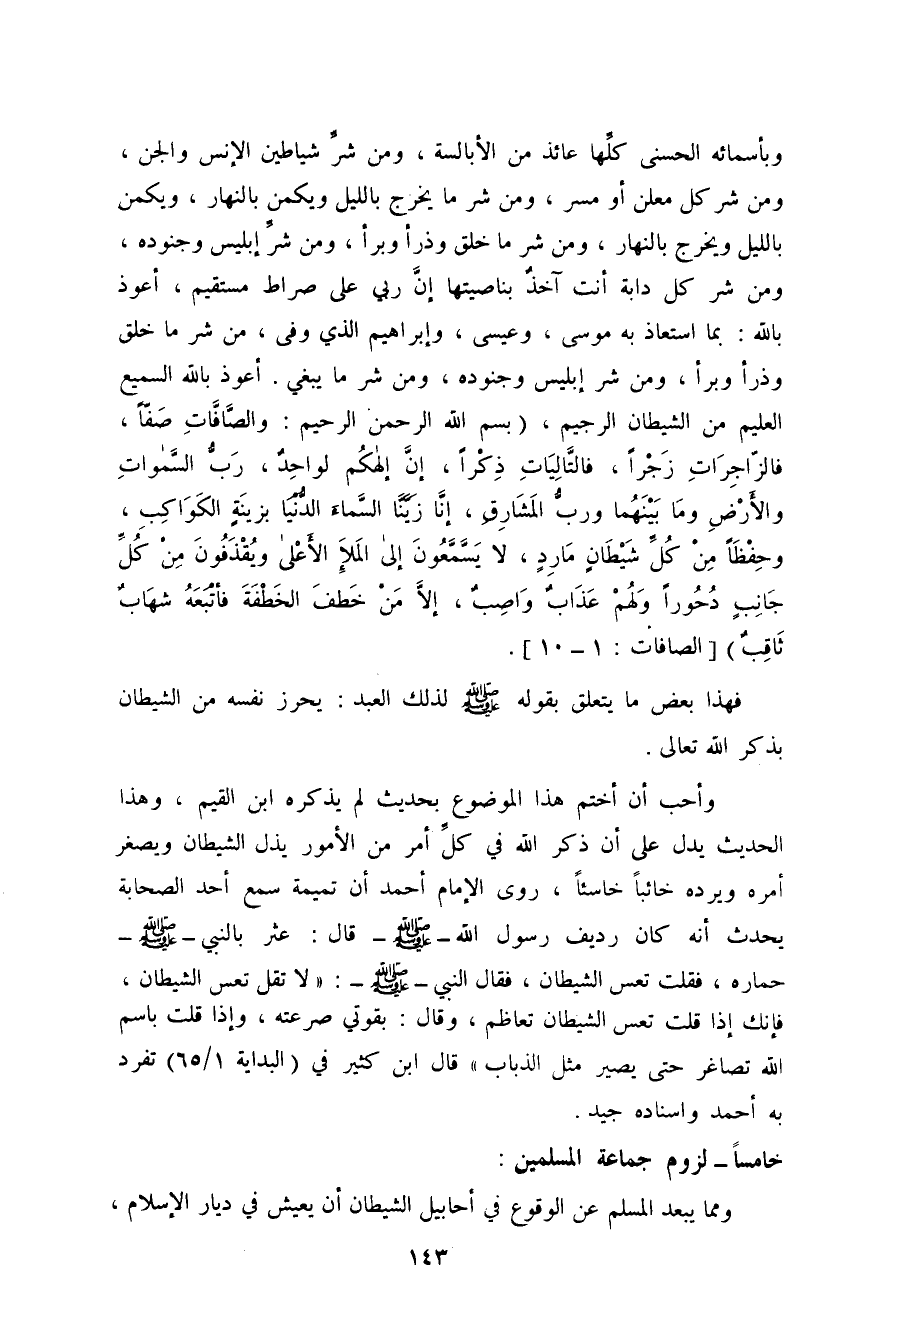 وبأسمائه الحسنى كلِّها عائذ من الأبالسة ، ومن شرِّ شياطين الإنس والجن ،
ومن شر كل معلن أو مسر ، ومن شر ما يخرج بالليل ويكمن بالنهار ، ويكمن
بالليل ويخرج بالنهار ، ومن شر ما خلق وذرأ وبرأ ، ومن شرِّ إبليس وجنوده ،
ومن شر كل دابة أنت آخذٌ بناصيتها إنَّ ربي على صراط مستقيم ، أعوذ
بالله : بما استعاذ به موسى ، وعيسى ، وإبراهيم الذي وفى ، من شر ما خلق
وذرأ وبرأ ، ومن شر إبليس وجنوده ، ومن شر ما يبغي . أعوذ بالله السميع
العليم من الشيطان الرجيم ، ( بسم الله الرحمن الرحيم : والصَّافَّاتِ صَفّاً ،
فالزّاجِرَاتِ زَجْراً ، فالتَّالِيَاتِ ذِكْراً ، إنَّ إلهَكُم لواحِدٌ ، رَبُّ السَّمٰواتِ
والأَرْضِ ومَا بَيْنَهُما وربُّ المَشَارِقِ ، إنَّا زيَّنَّا السَّماءَ الدُّنْيَا بزينَةٍ الكَوَاكِبِ ،
وحِفْظَاً مِنْ كُلِّ شَيْطَانٍ مَارِدٍ ، لا يَسَّمَّعُونَ إلىٰ المَلإِ الأَعْلىٰ ويُقْذَفُونَ مِنْ كُلِّ
جَانِبٍ دُحُوراً ولَهُمْ عَذَابٌ وَاصِبٌ ، إلاَّ مَنْ خَطفَ الخَطْفَةَ فأَتْبَعَهُ شهَابٌ
ثَاقِبٌ ) [ الصافات : ١ – ١٠ ] .
فهذا بعض ما يتعلق بقوله ﷺ لذلك العبد : يحرز نفسه من الشيطان
بذكر الله تعالى .
وأحب أن أختم هذا الموضوع بحديث لم يذكره ابن القيم ، وهذا
الحديث يدل على أن ذكر الله في كلِّ أمر من الأمور يذل الشيطان ويصغر
أمره ويرده خائباً خاسئاً ، روى الإمام أحمد أن تميمة سمع أحد الصحابة
يحدث أنه كان رديف رسول الله – ﷺ – قال : عثر بالنبي – ﷺ –
حماره ، فقلت تعس الشيطان ، فقال النبي – ﷺ – : « لا تقل تعس الشيطان ،
فإنك إذا قلت تعس الشيطان تعاظم ، وقال : بقوتي صرعته ، وإذا قلت باسم
الله تصاغر حتى يصير مثل الذباب » قال ابن كثير في ( البداية ٦٥/١) تفرد
به أحمد واسناده جيد .
خامساً – لزوم جماعة المسلمين :
ومما يبعد المسلم عن الوقوع في أحابيل الشيطان أن يعيش في ديار الإسلام ،
١٤٣